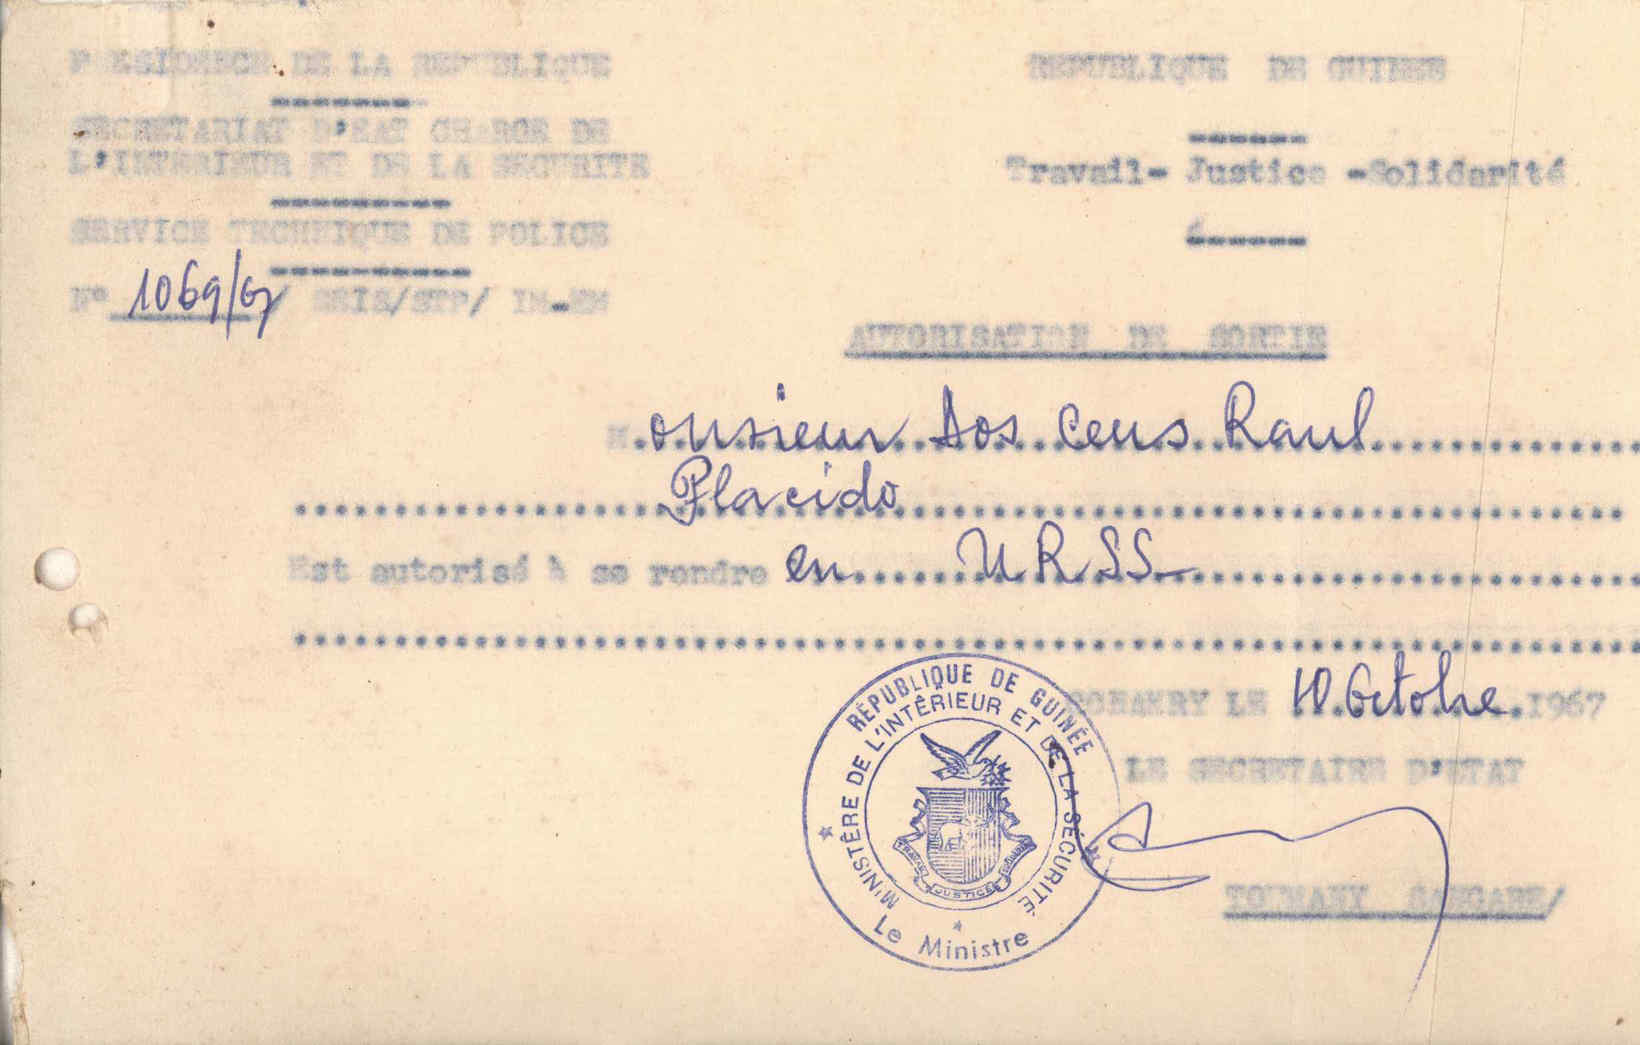 PRESIDENCE DE LA REPUBLIQUE
SECRETARIAT D'EAT CHARGE DE
L'INTERIEUR ET DE LA SECURITE
SERVICE TECHNIQUE DE POLICE
N° 1069/67/ SEIS/STP/ IM-EM
REPUBLIQUE DE GUINEE
Travail- Justice -Solidarité
AUTORISATION DE SORTIE
Monsieur Dos Cens Raul
Placido
Est autorisé à se rendre en URSS
CONAKRY LE 10 Octobre 1967
LE SECRETAIRE D'ETAT
TOUMANY SANGARE/
RÉPUBLIQUE DE GUINÉE
MINISTÈRE DE L'INTÉRIEUR ET DE LA SÉCURITÉ
TRAVAIL JUSTICE
Le Ministre